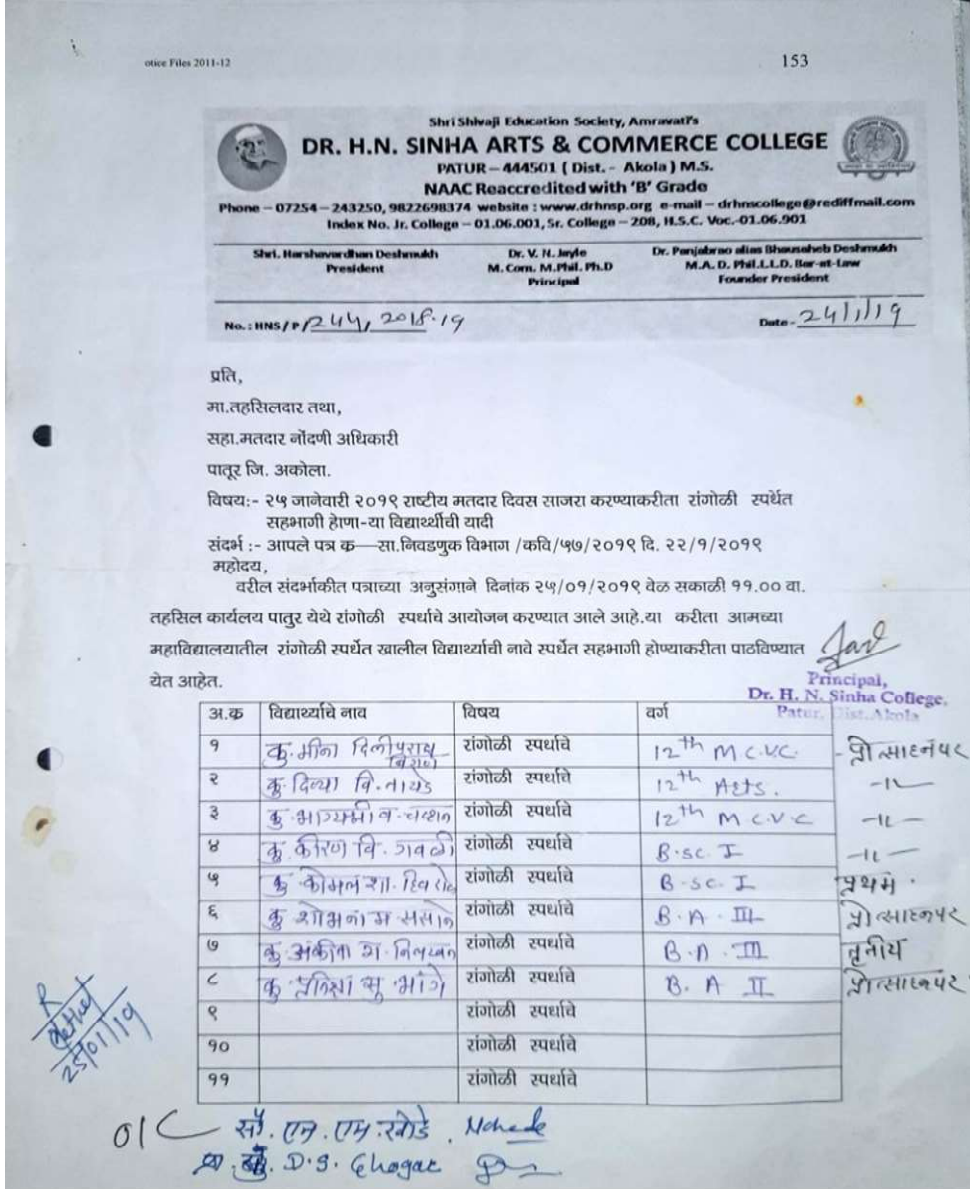 otice Files 2011-12
153
Shri Shivaji Education Society, Amravati's
DR. H.N. SINHA ARTS & COMMERCE COLLEGE
PATUR – 444501 ( Dist. - Akola ) M.S.
NAAC Reaccredited with 'B' Grade
Phone – 07254 – 243250, 9822698374 website : www.drhnsp.org e-mail – drhnscollege@rediffmail.com
Index No. Jr. College – 01.06.001, Sr. College – 208, H.S.C. Voc.-01.06.901
Shri. Harshavardhan Deshmukh Dr. V. N. Dr. Panjabrao alias Bhausaheb Deshmukh
President M. Com. M.Phil. Ph.D M.A. D. Phil.L.L.D. Bar-at-Law
Principal Founder President
No. : HNS / P / 244, 2018-19 Date - 24/1/19
प्रति,
मा.तहसिलदार तथा,
सहा.मतदार नोंदणी अधिकारी
पातूर जि. अकोला.
विषय:- २५ जानेवारी २०१९ राष्टीय मतदार दिवस साजरा करण्याकरीता रांगोळी स्पर्धेत
सहभागी हेाणा-या विद्यार्थ्यीची यादी
संदर्भ :- आपले पत्र क—सा.निवडणुक विभाग /कवि/५७/२०१९ दि. २२/१/२०१९
महोदय,
वरील संदर्भाकीत पत्राच्या अनुसंगाने दिनांक २५/०१/२०१९ वेळ सकाळी ११.०० वा.
तहसिल कार्यलय पातुर येथे रांगोळी स्पर्धाचे आयोजन करण्यात आले आहे.या करीता आमच्या
महाविद्यालयातील रांगोळी स्पर्धेत खालील विद्यार्थ्याची नावे स्पर्धेत सहभागी होण्याकरीता पाठविण्यात
येत आहेत.
Principal,
Dr. H. N. Sinha College,
Patur, Dist.Akola
अ.क विद्यार्थ्याचे नाव विषय वर्ग
१ कु. मीना दिलीपराव रांगोळी स्पर्धाचे 12th M.C.V.C. - प्रोत्साहनपर
२ कु. दिव्या वि. रांगोळी स्पर्धाचे 12th Arts. -॥-
३ कु. भाग्यश्री व. चव्हाण रांगोळी स्पर्धाचे 12th M.C.V.C -॥-
४ कु. कीरण वि. गवळी रांगोळी स्पर्धाचे B.sc. I -॥-
५ कु कोमल शा. रांगोळी स्पर्धाचे B.sc. I प्रथम .
६ कु शोभना म ससाने रांगोळी स्पर्धाचे B.A. III प्रोत्साहनपर
७ कु. अंकीता रांगोळी स्पर्धाचे B.A. III तृतीय
८ कु सु. भांगे रांगोळी स्पर्धाचे B. A II प्रोत्साहनपर
९ रांगोळी स्पर्धाचे
१० रांगोळी स्पर्धाचे
११ रांगोळी स्पर्धाचे
R
25/01/19
O/C सौ. एन. एम. खोडे .
D.S. Ghogar